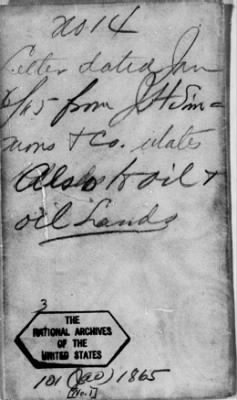 No 14
Letter dated Jan
6/65 from J H Sim=
mons & Co. relates
Also to oil &
oil Lands
3
THE
NATIONAL ARCHIVES
OF THE
UNITED STATES
101 (aa) 1865
[No.1]